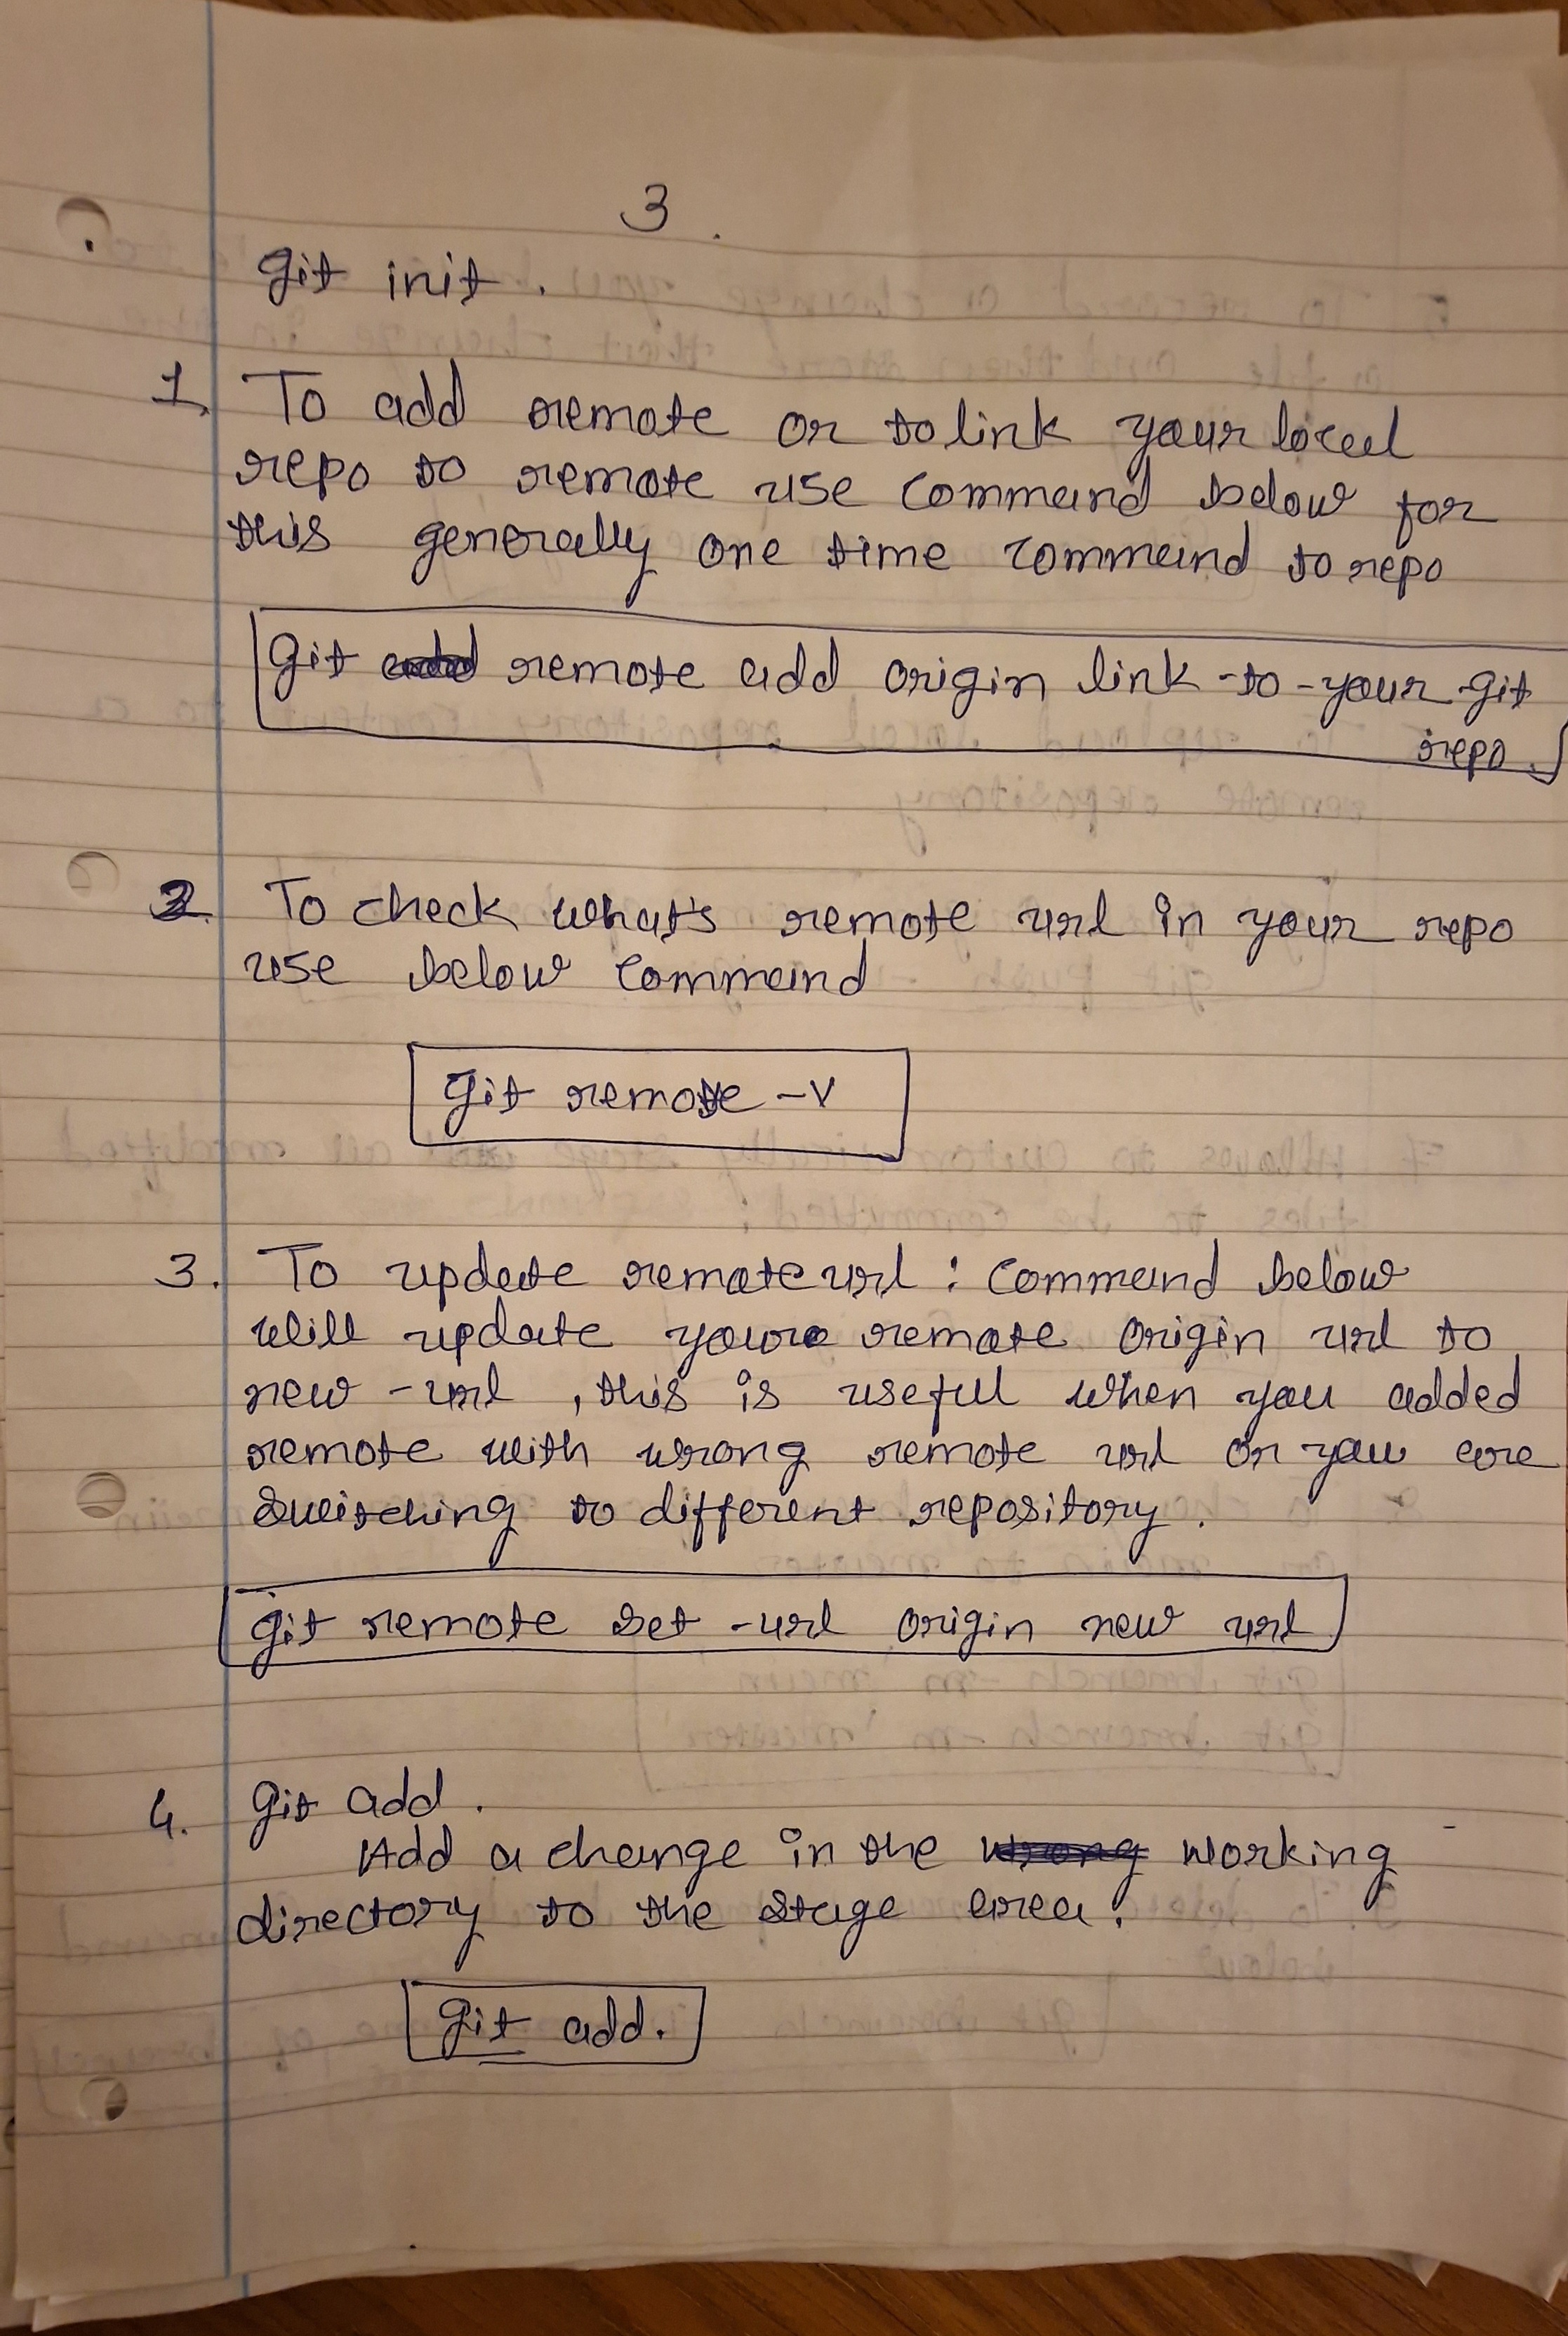 3.
git init.
1. To add remote or to link your local
repo to remote use command below for
this generally one time command to repo
git remote add origin link-to-your-git
repo.
2. To check what's remote url in your repo
use below command
git remote -v
3. To update remote url : Command below
will update your remote origin url to
new-url, this is useful when you added
remote with wrong remote url or you are
switching to different repository.
git remote set-url origin new url
4. git add.
Add a change in the working
directory to the stage area.
git add.